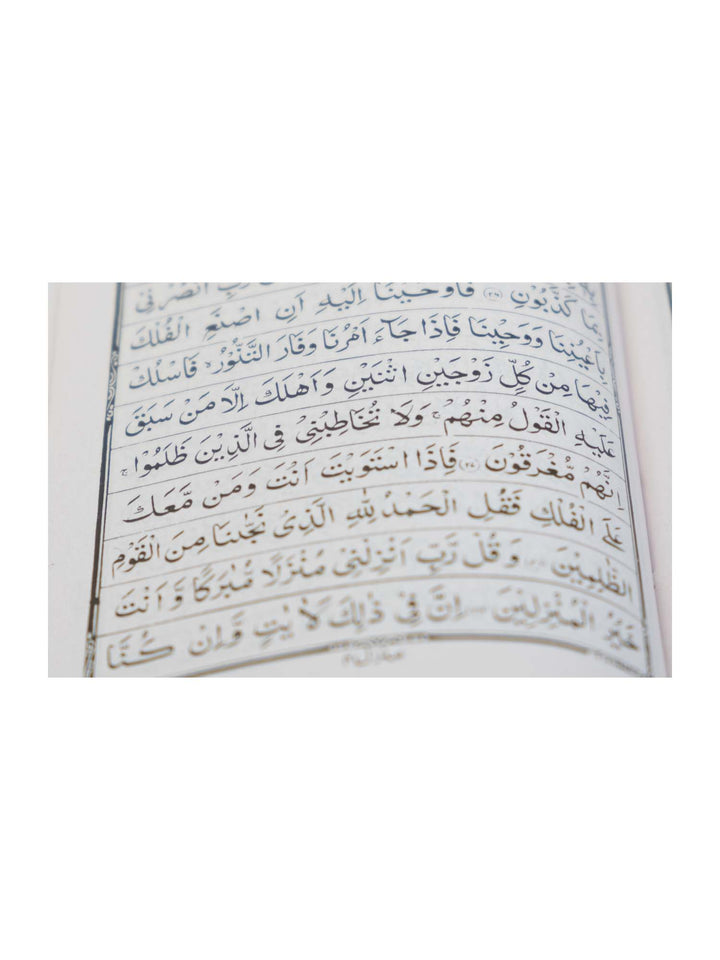 رَبِّ انْصُرْنِیْ
بِمَا كَذَّبُوْنِ ﴿۲۶﴾ فَاَوْحَیْنَاۤ اِلَیْهِ اَنِ اصْنَعِ الْفُلْكَ
بِاَعْیُنِنَا وَوَحْیِنَا فَاِذَا جَآءَ اَمْرُنَا وَفَارَ التَّنُّوْرُ ۙ فَاسْلُكْ
فِیْهَا مِنْ كُلٍّ زَوْجَیْنِ اثْنَیْنِ وَاَهْلَكَ اِلَّا مَنْ سَبَقَ
عَلَیْهِ الْقَوْلُ مِنْهُمْ ۚ وَلَا تُخَاطِبْنِیْ فِی الَّذِیْنَ ظَلَمُوْا ۚ
اِنَّهُمْ مُّغْرَقُوْنَ ﴿۲۷﴾ فَاِذَا اسْتَوَیْتَ اَنْتَ وَمَنْ مَّعَكَ
عَلَی الْفُلْكِ فَقُلِ الْحَمْدُ لِلّٰهِ الَّذِیْ نَجّٰىنَا مِنَ الْقَوْمِ
الظّٰلِمِیْنَ ﴿۲۸﴾ وَقُلْ رَّبِّ اَنْزِلْنِیْ مُنْزَلًا مُّبٰرَكًا وَّاَنْتَ
خَیْرُ الْمُنْزِلِیْنَ ﴿۲۹﴾ اِنَّ فِیْ ذٰلِكَ لَاٰیٰتٍ وَّاِنْ كُنَّا